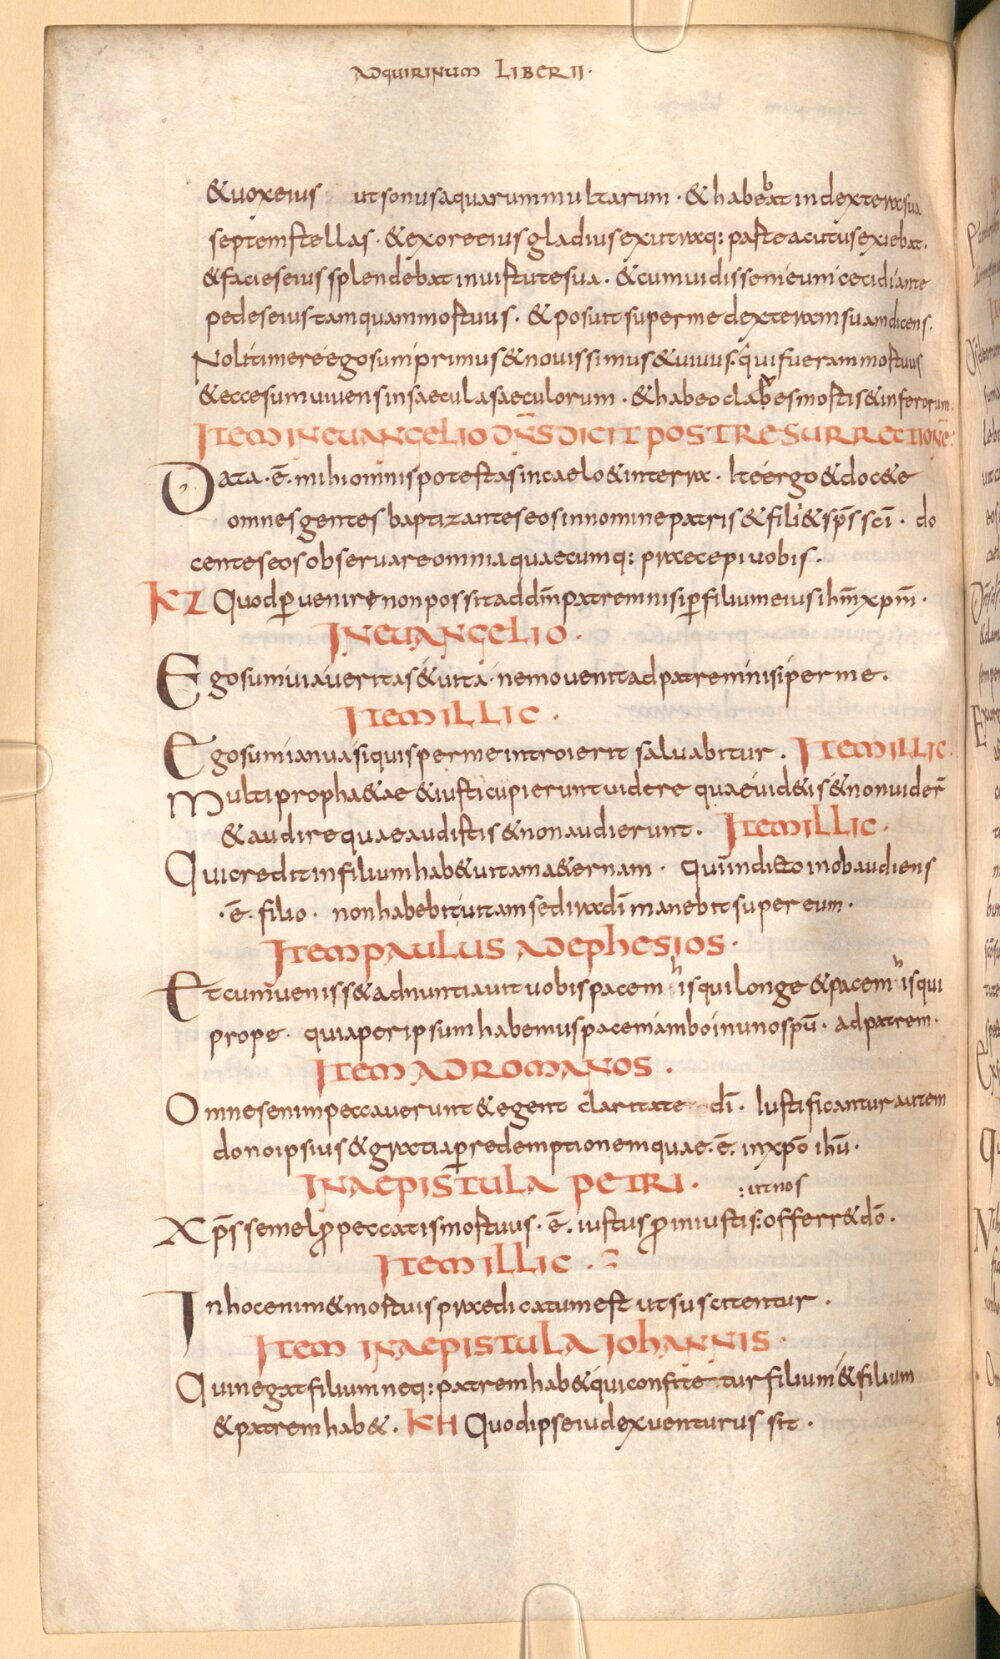 ADQUIRINUM LIBER II·
&uoxeius utsonusaquarummultarum · &habebat indexterasua
septemstellas · &exoreeiusgladiusexutraq: parteacutusexiebat.
&facieseiussplendebatinuirtutesua · &cumuidissemeumcecidiante
pedeseiustamquammortuus · &posuitsupermedexteramsuamdicens.
Nolitimereegosumprimus&nouissimus&uiuus:quifuerammortuus
&eccesumuiuensinsaeculasaeculorum · &habeoclabesmortis&inferorum
ITEM IN EUANGELIO DN̄S DICIT POST RESURRECTIONĒ:
Data · ē · mihiomnispotestasincaelo&interra · Iteergo&doc&e
omnesgentes baptizanteseosinnominepatris&filii&sp̄s sc̄i · do
centeseosobseruareomniaquaecumq: praecepiuobis ·
KZ Quodꝑuenirenonpossitaddm̄patremnisiꝑfiliumeiusihm̄xpm̄ ·
IN EUANGELIO ·
Egosumuiaueritas&uita · nemouenitadpatremnisiperme ·
ITEM ILLIC ·
Egosumianuasiquispermeintroierit saluabitur · ITEM ILLIC ·
Multiproph&ae&iusticupieruntuidere quaeuid&is&nonuider̄
&audirequaeaudistis&nonaudierunt · ITEM ILLIC ·
Quicreditinfiliumhab&uitama&ernam · Quīindictoinobaudiens
· ē · filio · nonhabebituitamsediradīmanebitsupereum ·
ITEM PAULUS AD EPHESIOS ·
Etcumueniss&adnuntiauituobispacem hisquilonge&pacem hisqui
prope · quiaperipsumhabemuspacemamboinunospū · adpatrem ·
ITEM AD ROMANOS ·
Omnesenimpeccauerunt&egent claritate dī · Iustificanturautem
donoipsius&gratiaꝑredemptionemquae · ē · inxpō ihū ·
IN AEPISTULA PETRI ·
: ut nos
Xp̄ssemelꝓpeccatismortuus · ē · iustusꝓiniustis:offerr&dō ·
ITEM ILLIC ·
Inhocenim&mortuispraedicatumest utsuscitentur ·
ITEM IN AEPISTULA IOHANNIS ·
Quinegatfiliumneq:patremhab&quiconfitetur filium&filium
&patremhab& · KH Quodipseiudexuenturus sit ·